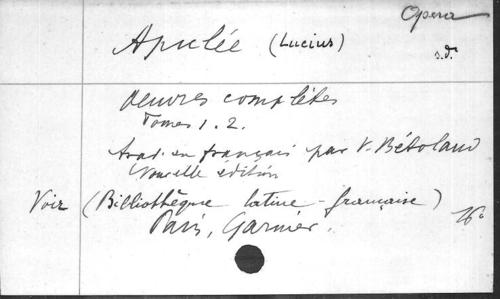 Opera
Apulée (Lucius)
s.d.
Oeuvres complètes
Tomes 1. 2.
trad. en français par V. Bétolaud
Nouvelle édition
Voir (Bibliothèque latine-française)
Paris, Garnier.
16°